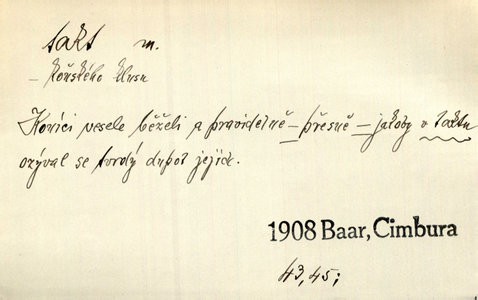 takt m.
– koňského klusu
Koníci vesele běželi a pravidelně – přesně – jakoby v taktu
ozýval se tvrdý dupot jejich.
1908 Baar, Cimbura
43,45;